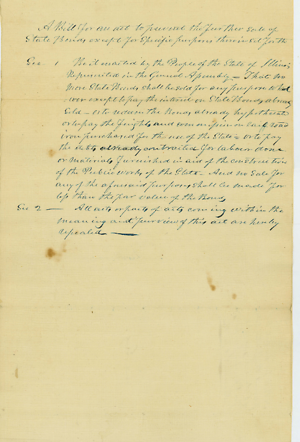 A Bill for an act to prevent the further Sale of
State Bonds except for Specific purposes therein set forth
Sec 1 Be it enacted by the People of the State of Illinois
Represented in the General Assembly — That no
more State Bonds shall be sold for any purpose what
ever except to pay the interest on State Bonds already
Sold — or to redeem the Bonds already hypothecated
or to pay the freights and on rail road
iron purchased for the use of the State or to pay
the debts already contracted for labour done
or materials furnished in aid of the construction
of the Public works of the State. And no Sale for
any of the aforesaid purposes shall be made for
less than the par value of the Bonds
Sec 2 — All acts or parts of acts coming within the
meaning and purview of this act are hereby
repealed —